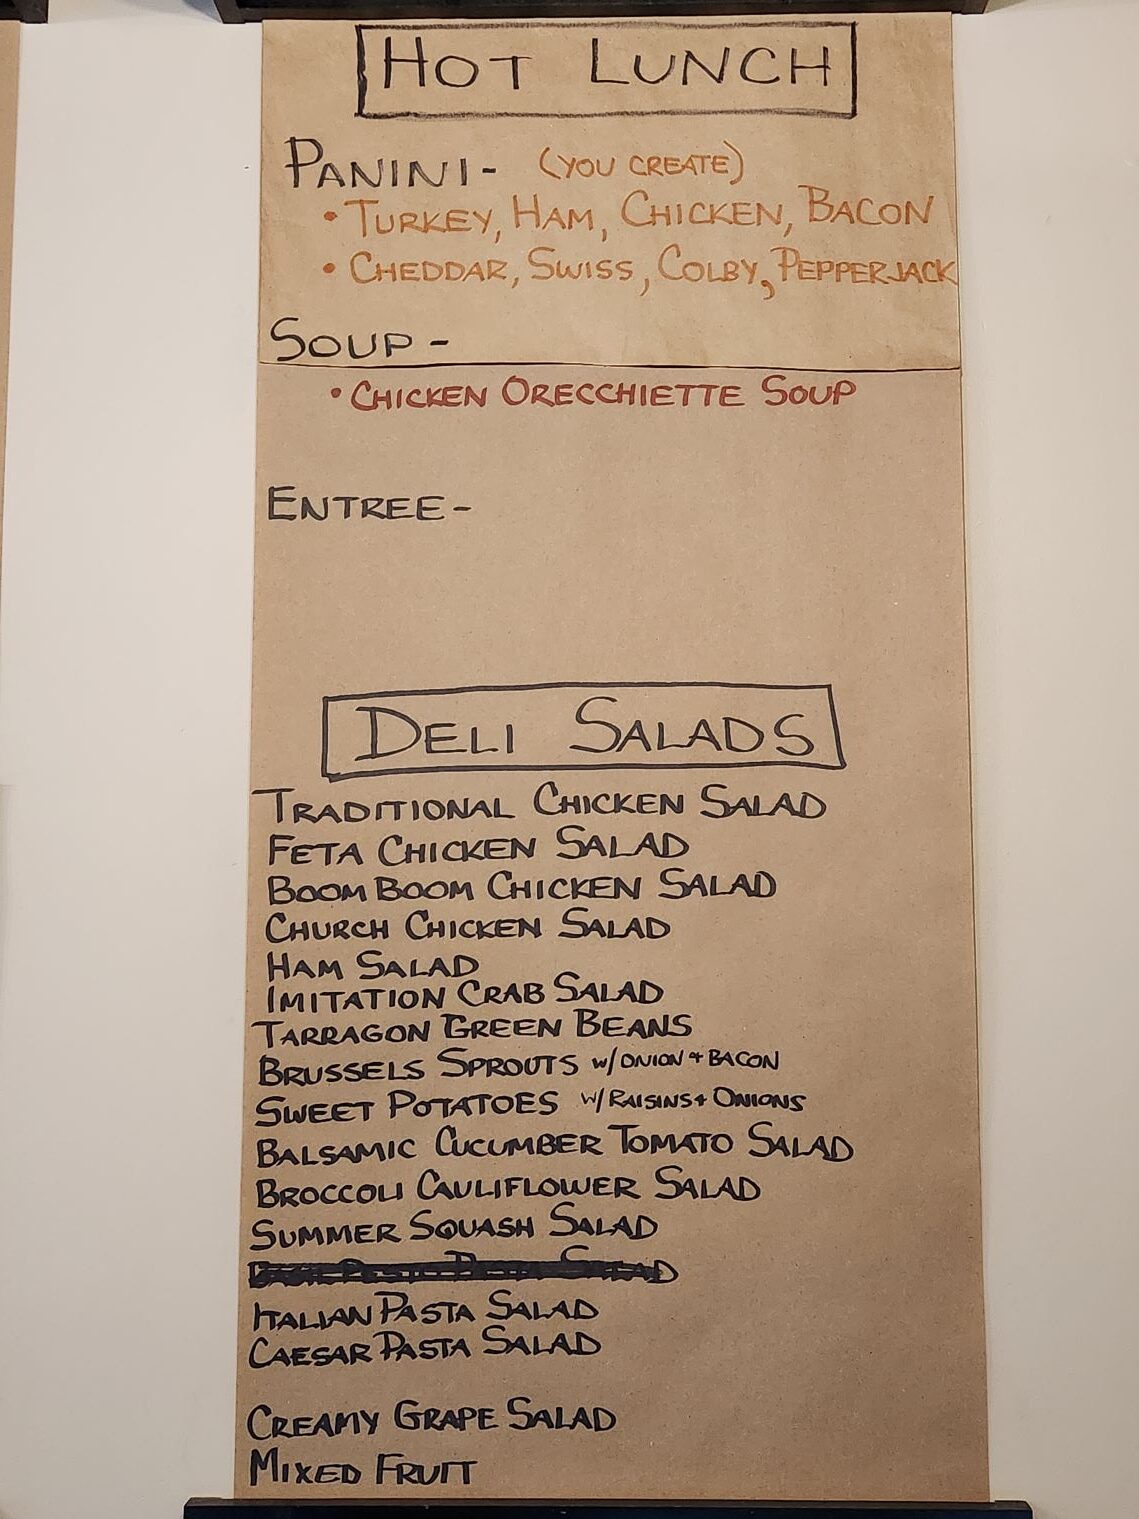 HOT LUNCH
PANINI- (YOU CREATE)
• TURKEY, HAM, CHICKEN, BACON
• CHEDDAR, SWISS, COLBY, PEPPERJACK
SOUP-
• CHICKEN ORECCHIETTE SOUP
ENTREE-
DELI SALADS
TRADITIONAL CHICKEN SALAD
FETA CHICKEN SALAD
BOOM BOOM CHICKEN SALAD
CHURCH CHICKEN SALAD
HAM SALAD
IMITATION CRAB SALAD
TARRAGON GREEN BEANS
BRUSSELS SPROUTS W/ONION + BACON
SWEET POTATOES W/RAISINS + ONIONS
BALSAMIC CUCUMBER TOMATO SALAD
BROCCOLI CAULIFLOWER SALAD
SUMMER SQUASH SALAD
SALAD
ITALIAN PASTA SALAD
CAESAR PASTA SALAD
CREAMY GRAPE SALAD
MIXED FRUIT